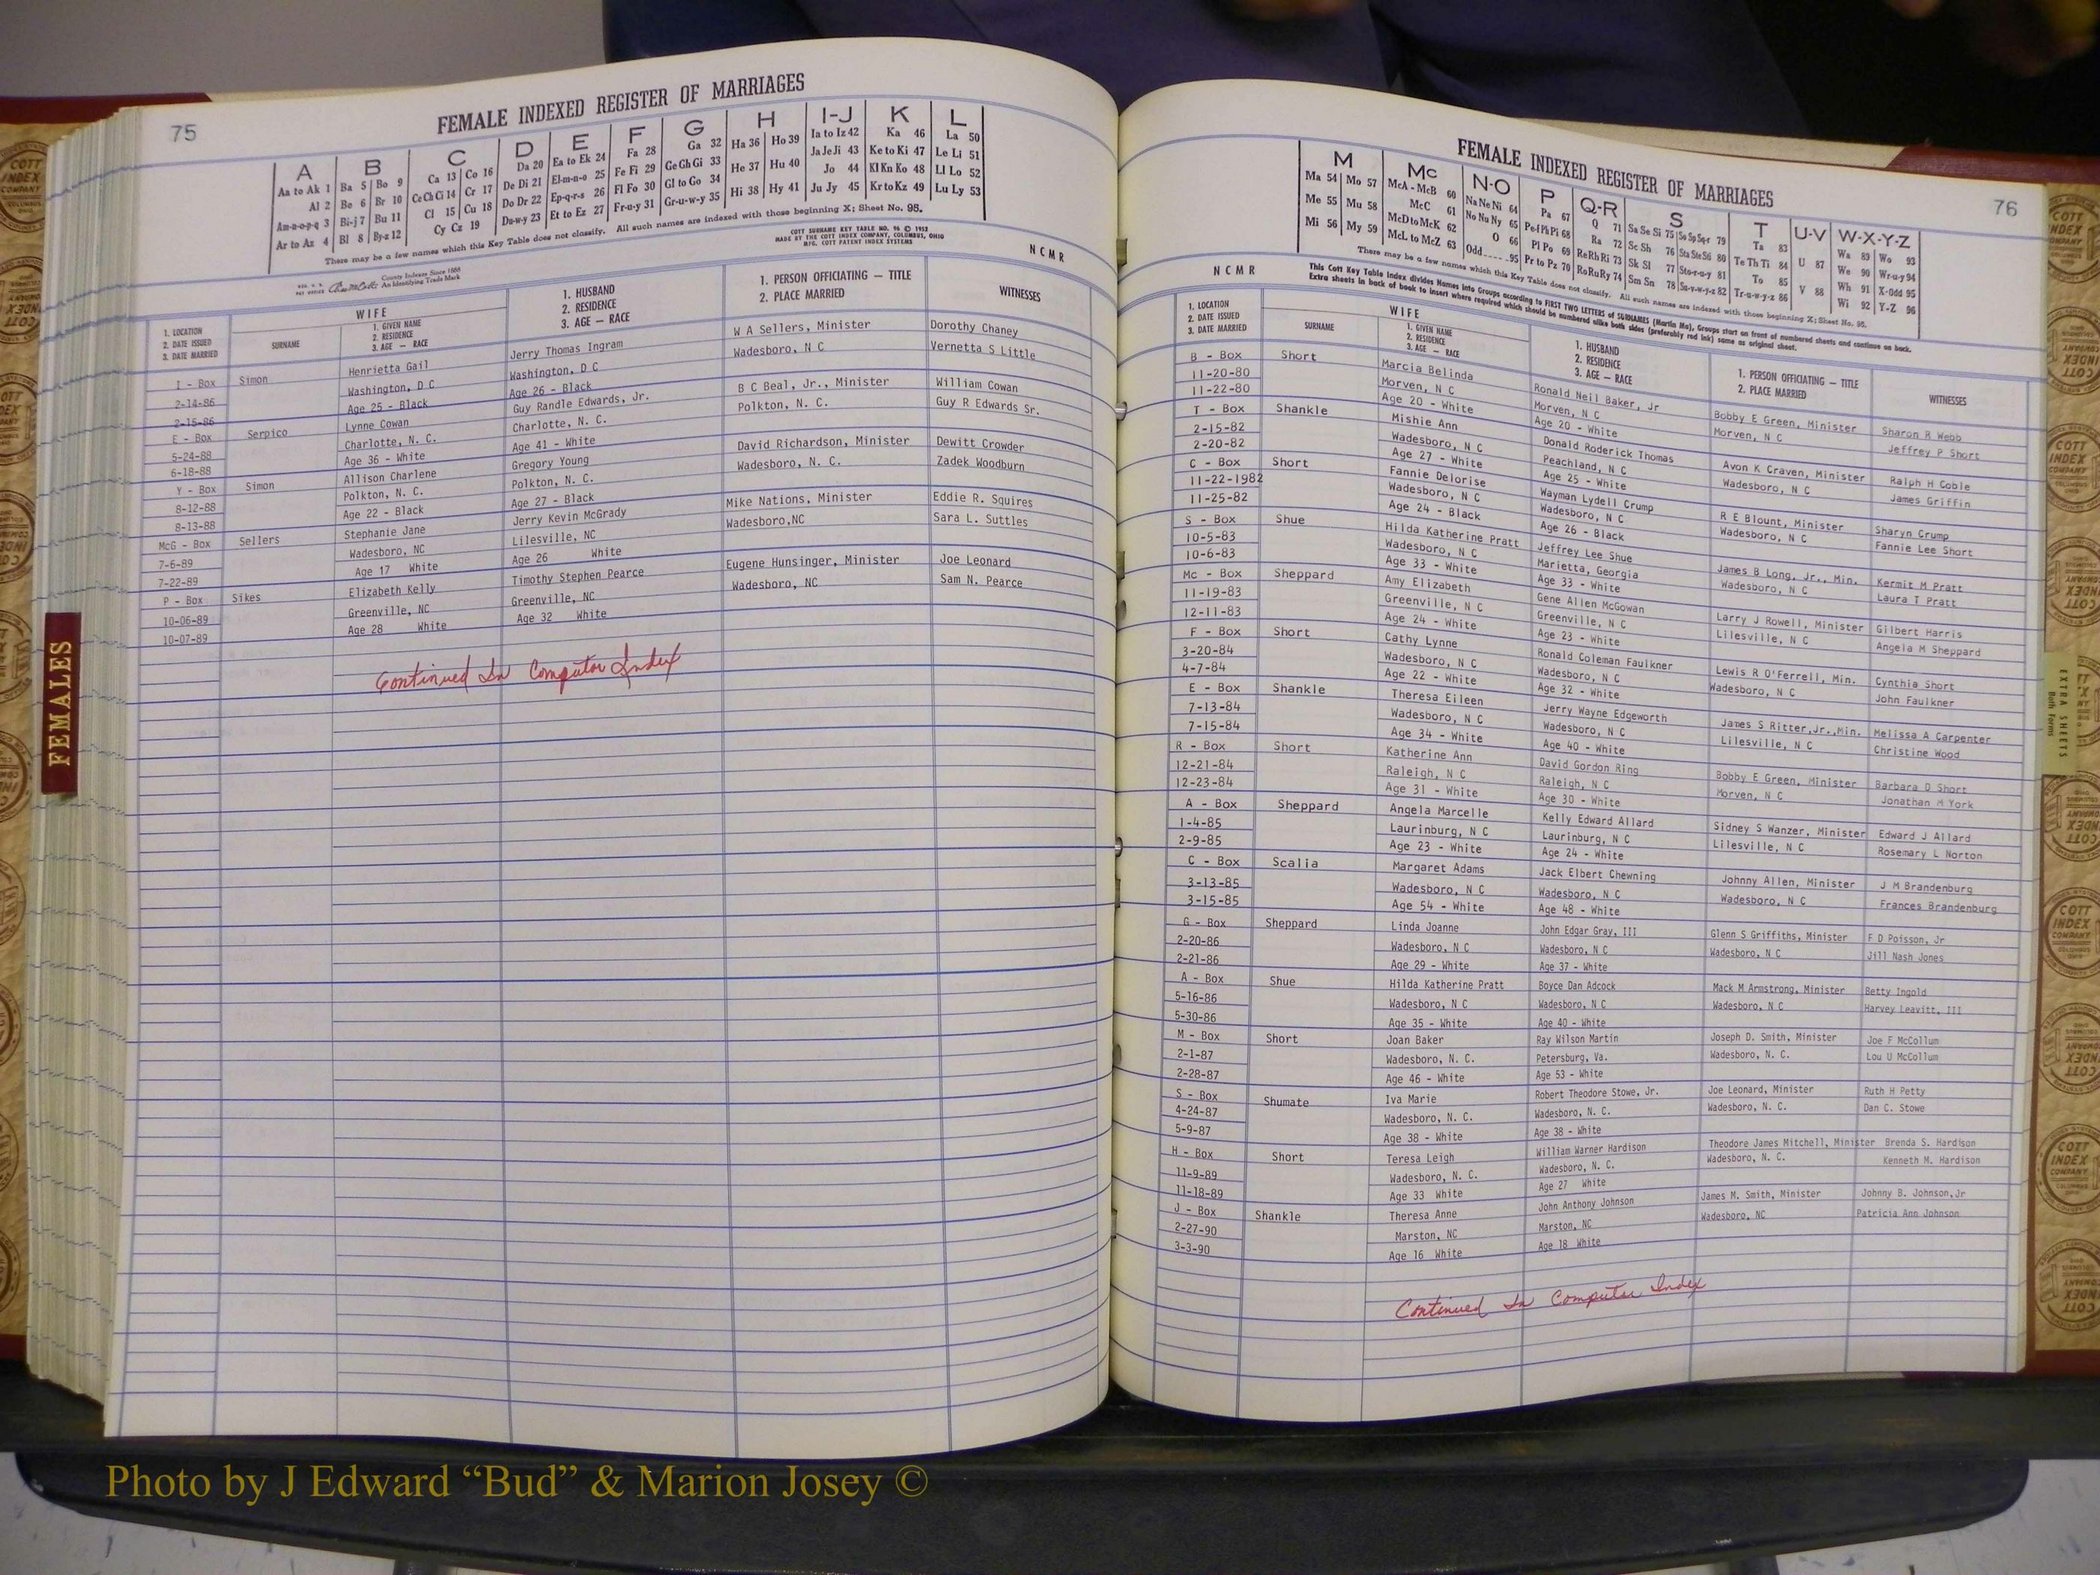 75
FEMALE INDEXED REGISTER OF MARRIAGES
A B C D E F G H I-J K L
Aa to Ak 1 Ba 5 Bo 9 Ca 13 Co 16 Da 20 Ea to Ek 24 Fa 28 Ga 32 Ha 36 Ho 39 Ia to Iz 42 Ka 46 La 50
Al 2 Be 6 Br 10 Ce Ch Ci 14 Cr 17 De Di 21 El-m-n-o 25 Fe Fi 29 Ge Gh Gi 33 He 37 Hu 40 Ja Je Ji 43 Ke to Ki 47 Le Li 51
Am-n-o-p-q 3 Bi-j 7 Bu 11 Cl 15 Cu 18 Do Dr 22 Ep-q-r-s 26 Fl Fo 30 Gl to Go 34 Hi 38 Hy 41 Jo 44 Kl Kn Ko 48 Ll Lo 52
Ar to Az 4 Bl 8 By-z 12 Cy Cz 19 Du-w-y 23 Et to Ez 27 Fr-u-y 31 Gr-u-w-y 35 Ju Jy 45 Kr to Kz 49 Lu Ly 53
There may be a few names which this Key Table does not classify. All such names are indexed with those beginning X; Sheet No. 95.
COTT SURNAME KEY TABLE NO. 96 © 1952
MADE BY THE COTT INDEX COMPANY, COLUMBUS, OHIO
MFG. COTT PATENT INDEX SYSTEMS
NCMR
County Indexes Since 1888
An Identifying Trade Mark
1. LOCATION
2. DATE ISSUED
3. DATE MARRIED
WIFE
SURNAME
1. GIVEN NAME
2. RESIDENCE
3. AGE — RACE
1. HUSBAND
2. RESIDENCE
3. AGE — RACE
1. PERSON OFFICIATING — TITLE
2. PLACE MARRIED
WITNESSES
I - Box Simon Henrietta Gail Jerry Thomas Ingram W A Sellers, Minister Dorothy Chaney
2-14-86 Washington, D C Washington, D C Wadesboro, N C Vernetta S Little
2-15-86 Age 25 - Black Age 26 - Black
E - Box Serpico Lynne Cowan Guy Randle Edwards, Jr. B C Beal, Jr., Minister William Cowan
5-24-88 Charlotte, N. C. Charlotte, N. C. Polkton, N. C. Guy R Edwards Sr.
6-18-88 Age 36 - White Age 41 - White
Y - Box Simon Allison Charlene Gregory Young David Richardson, Minister Dewitt Crowder
8-12-88 Polkton, N. C. Polkton, N. C. Wadesboro, N. C. Zadek Woodburn
8-13-88 Age 22 - Black Age 27 - Black
McG - Box Sellers Stephanie Jane Jerry Kevin McGrady Mike Nations, Minister Eddie R. Squires
7-6-89 Wadesboro, NC Lilesville, NC Wadesboro,NC Sara L. Suttles
7-22-89 Age 17 White Age 26 White
P - Box Sikes Elizabeth Kelly Timothy Stephen Pearce Eugene Hunsinger, Minister Joe Leonard
10-06-89 Greenville, NC Greenville, NC Wadesboro, NC Sam N. Pearce
10-07-89 Age 28 White Age 32 White
Continued In Computer Index
FEMALES
76
FEMALE INDEXED REGISTER OF MARRIAGES
M Mc N-O P Q-R S T U-V W-X-Y-Z
Ma 54 Mo 57 McA - McB 60 Na Ne Ni 64 Pa 67 Q 71 Sa Se Si 75 So Sp Sq-r 79 Ta 83 U 87 Wa 89 Wo 93
Me 55 Mu 58 McC 61 No Nu Ny 65 Pe-f Ph Pi 68 Ra 72 Sc Sh 76 Sta Ste Sti 80 Te Th Ti 84 V 88 We 90 Wr-u-y 94
Mi 56 My 59 McD to McK 62 O 66 Pl Po 69 Re Rh Ri 73 Sk Sl 77 Sto-r-u-y 81 To 85 Wh 91 X-Odd 95
McL to McZ 63 Odd.....95 Pr to Pz 70 Ro Ru Ry 74 Sm Sn 78 Su-v-w-y-z 82 Tr-u-w-y-z 86 Wi 92 Y-Z 96
There may be a few names which this Key Table does not classify. All such names are indexed with those beginning X; Sheet No. 95.
NCMR
This Cott Key Table Index divides Names into Groups according to FIRST TWO LETTERS of SURNAMES (Martin Ma), Groups start on front of numbered sheets and continue on back.
Extra sheets in back of book to insert where required which should be numbered alike both sides (preferably red ink) same as original sheet.
1. LOCATION
2. DATE ISSUED
3. DATE MARRIED
WIFE
SURNAME
1. GIVEN NAME
2. RESIDENCE
3. AGE — RACE
1. HUSBAND
2. RESIDENCE
3. AGE — RACE
1. PERSON OFFICIATING — TITLE
2. PLACE MARRIED
WITNESSES
B - Box Short Marcia Belinda Ronald Neil Baker, Jr Bobby E Green, Minister Sharon R Webb
11-20-80 Morven, N C Morven, N C Morven, N C Jeffrey P Short
11-22-80 Age 20 - White Age 20 - White
T - Box Shankle Mishie Ann Donald Roderick Thomas Avon K Craven, Minister Ralph H Coble
2-15-82 Wadesboro, N C Peachland, N C Wadesboro, N C James Griffin
2-20-82 Age 27 - White Age 25 - White
C - Box Short Fannie Delorise Wayman Lydell Crump R E Blount, Minister Sharyn Crump
11-22-1982 Wadesboro, N C Wadesboro, N C Wadesboro, N C Fannie Lee Short
11-25-82 Age 24 - Black Age 26 - Black
S - Box Shue Hilda Katherine Pratt Jeffrey Lee Shue James B Long, Jr., Min. Kermit M Pratt
10-5-83 Wadesboro, N C Marietta, Georgia Wadesboro, N C Laura T Pratt
10-6-83 Age 33 - White Age 33 - White
Mc - Box Sheppard Amy Elizabeth Gene Allen McGowan Larry J Rowell, Minister Gilbert Harris
11-19-83 Greenville, N C Greenville, N C Lilesville, N C Angela M Sheppard
12-11-83 Age 24 - White Age 23 - White
F - Box Short Cathy Lynne Ronald Coleman Faulkner Lewis R O'Ferrell, Min. Cynthia Short
3-20-84 Wadesboro, N C Wadesboro, N C Wadesboro, N C John Faulkner
4-7-84 Age 22 - White Age 32 - White
E - Box Shankle Theresa Eileen Jerry Wayne Edgeworth James S Ritter,Jr.,Min. Melissa A Carpenter
7-13-84 Wadesboro, N C Wadesboro, N C Lilesville, N C Christine Wood
7-15-84 Age 34 - White Age 40 - White
R - Box Short Katherine Ann David Gordon Ring Bobby E Green, Minister Barbara D Short
12-21-84 Raleigh, N C Raleigh, N C Morven, N C Jonathan M York
12-23-84 Age 31 - White Age 30 - White
A - Box Sheppard Angela Marcelle Kelly Edward Allard Sidney S Wanzer, Minister Edward J Allard
1-4-85 Laurinburg, N C Laurinburg, N C Lilesville, N C Rosemary L Norton
2-9-85 Age 23 - White Age 24 - White
C - Box Scalia Margaret Adams Jack Elbert Chewning Johnny Allen, Minister J M Brandenburg
3-13-85 Wadesboro, N C Wadesboro, N C Wadesboro, N C Frances Brandenburg
3-15-85 Age 54 - White Age 48 - White
G - Box Sheppard Linda Joanne John Edgar Gray, III Glenn S Griffiths, Minister F D Poisson, Jr
2-20-86 Wadesboro, N C Wadesboro, N C Wadesboro, N C Jill Nash Jones
2-21-86 Age 29 - White Age 37 - White
A - Box Shue Hilda Katherine Pratt Boyce Dan Adcock Mack M Armstrong, Minister Betty Ingold
5-16-86 Wadesboro, N C Wadesboro, N C Wadesboro, N C Harvey Leavitt, III
5-30-86 Age 35 - White Age 40 - White
M - Box Short Joan Baker Ray Wilson Martin Joseph D. Smith, Minister Joe F McCollum
2-1-87 Wadesboro, N. C. Petersburg, Va. Wadesboro, N. C. Lou U McCollum
2-28-87 Age 46 - White Age 53 - White
S - Box Shumate Iva Marie Robert Theodore Stowe, Jr. Joe Leonard, Minister Ruth H Petty
4-24-87 Wadesboro, N. C. Wadesboro, N. C. Wadesboro, N. C. Dan C. Stowe
5-9-87 Age 38 - White Age 38 - White
H - Box Short Teresa Leigh William Warner Hardison Theodore James Mitchell, Minister Brenda S. Hardison
11-9-89 Wadesboro, N. C. Wadesboro, N. C. Wadesboro, N. C. Kenneth M. Hardison
11-18-89 Age 33 White Age 27 White
J - Box Shankle Theresa Anne John Anthony Johnson James M. Smith, Minister Johnny B. Johnson,Jr
2-27-90 Marston, NC Marston, NC Wadesboro, NC Patricia Ann Johnson
3-3-90 Age 16 White Age 18 White
Continued In Computer Index
EXTRA SHEETS
Both Forms
COTT
INDEX
COMPANY
COLUMBUS
Photo by J Edward “Bud” & Marion Josey ©